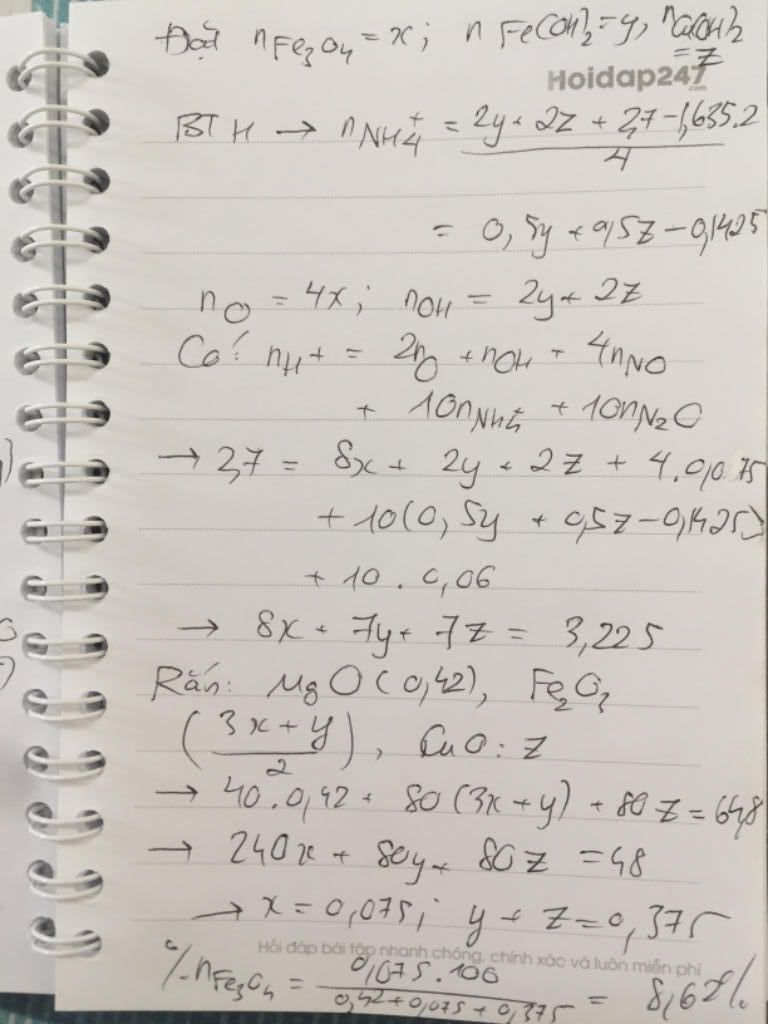 Đặt nFe3O4 = x; n Fe(OH)2 = y, nCu(OH)2 = z
Hoidap247
.com
BT H → nNH4+ = (2y + 2z + 2,7 - 1,635.2)/4
= 0,5y + 0,5z - 0,1425
nO = 4x; nOH = 2y + 2z
Có: nH+ = 2nO + nOH + 4nNO
+ 10nNH4+ + 10nN2O
→ 2,7 = 8x + 2y + 2z + 4.0,075
+ 10(0,5y + 0,5z - 0,1425)
+ 10 . 0,06
→ 8x + 7y + 7z = 3,225
Rắn: MgO (0,42), Fe2O3
((3x + y)/2), CuO: z
→ 40.0,42 + 80(3x + y) + 80z = 64,8
→ 240x + 80y + 80z = 48
→ x = 0,075; y + z = 0,375
Hỏi đáp bài tập nhanh chóng, chính xác và luôn miễn phí
%nFe3O4 = 0,075.100/(0,42 + 0,075 + 0,375) = 8,62%